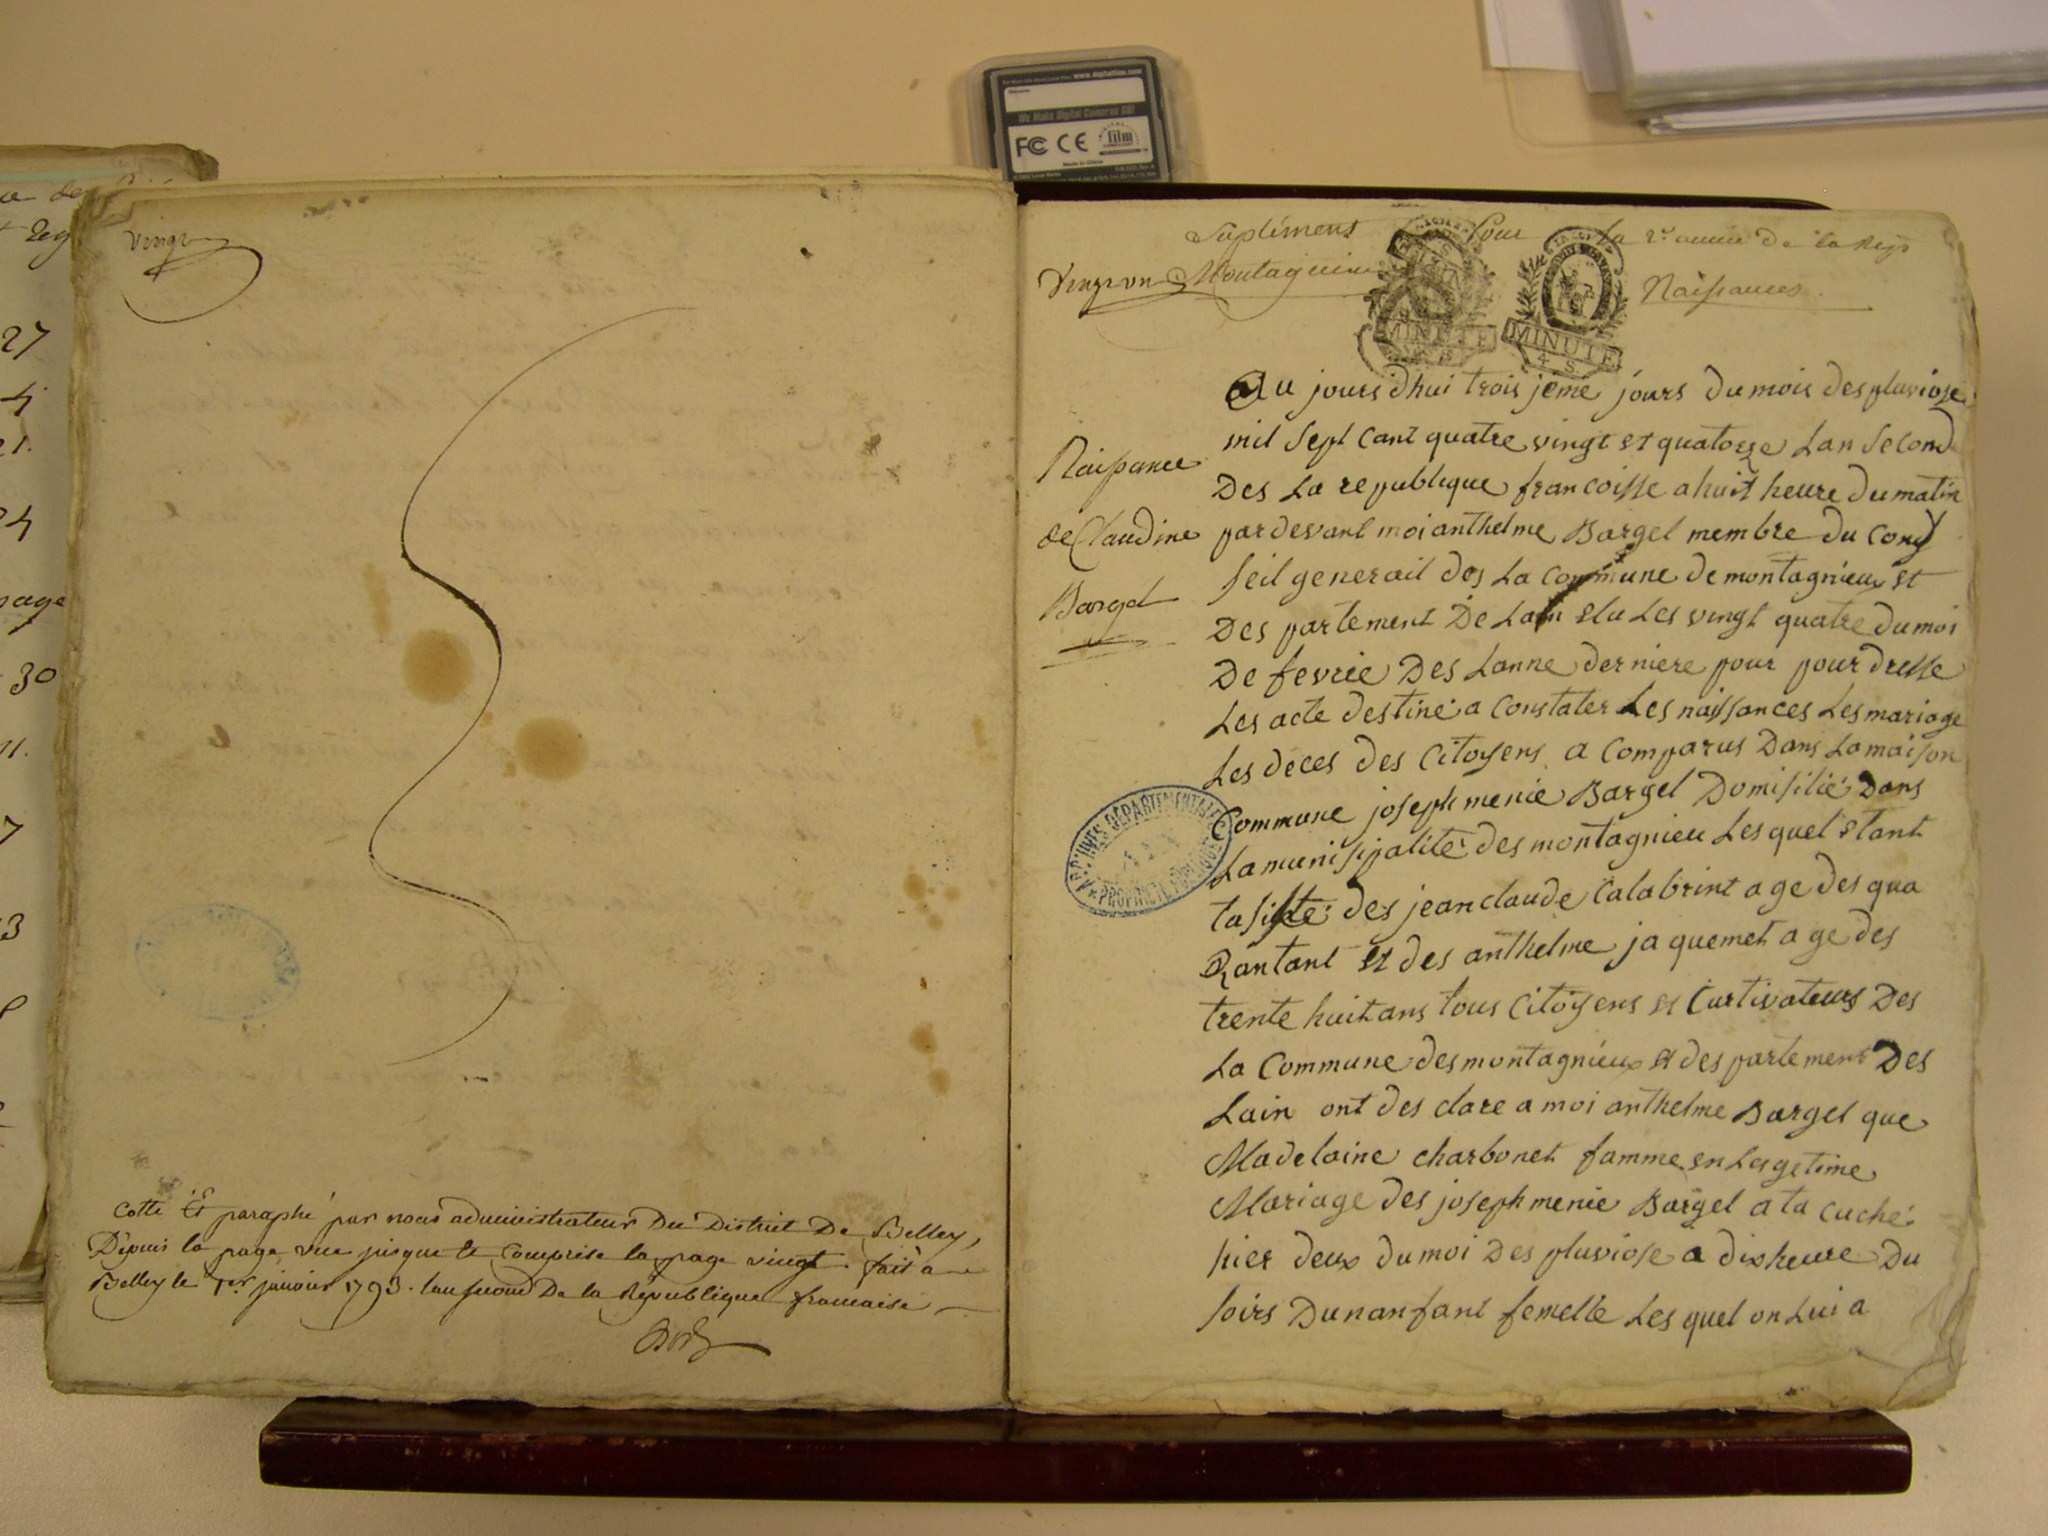 vingt
Cotté Et paraphé par nous administrateur Du District De Belley,
Depuis la page une jusque et comprise la page vingt. fait a
Belley le 1er janvier 1793. lan second De la République francaise
Suplément pour la 2e année de la Rep
vingt un Montagnieu Naissances.
MINUTE
4 S
MINUTE
4 S
Naissance
de Claudine
Bargel
Au jours dhui trois jeme jours du mois des pluviose
mil sept cant quatre vingt et quatorze Lan second
Des La republique francoisse a huit heure du matin
par devant moi anthelme Bargel membre du Con
seil generail des La commune de montagnieux et
Des partement De Lain elu Les vingt quatre du moi
De fevrie Des Lanne derniere pour pour dresse
Les acte destiné a Constater Les naissances Les mariage
Les deces des Citoyens a Comparus Dans La maison
Commune joseph menie Bargel Domisilié Dans
La munisipalité des montagnieu Les quel etant
tasisté des jean claude Calabrint age des qua
Rantant et des anthelme jaquemet age des
trente huit ans tous Citoyens et Curtivateurs Des
La Commune des montagnieux et des partement Des
Lain ont des clare a moi anthelme Bargel que
Madelaine charbonet famme en Les getime
Mariage des joseph menie Bargel a ta cuché
hier deux du moi Des pluviose a dix heure Du
soirs Dun anfant femelle Les quel on Lui a
ARCHIVES DEPARTEMENTALES
PROPRIETE PUBLIQUE
www.dephotfilm.com
We Make Digital Cameras GO!
FC CE
film
Made in China
27
4
21.
24
page
30